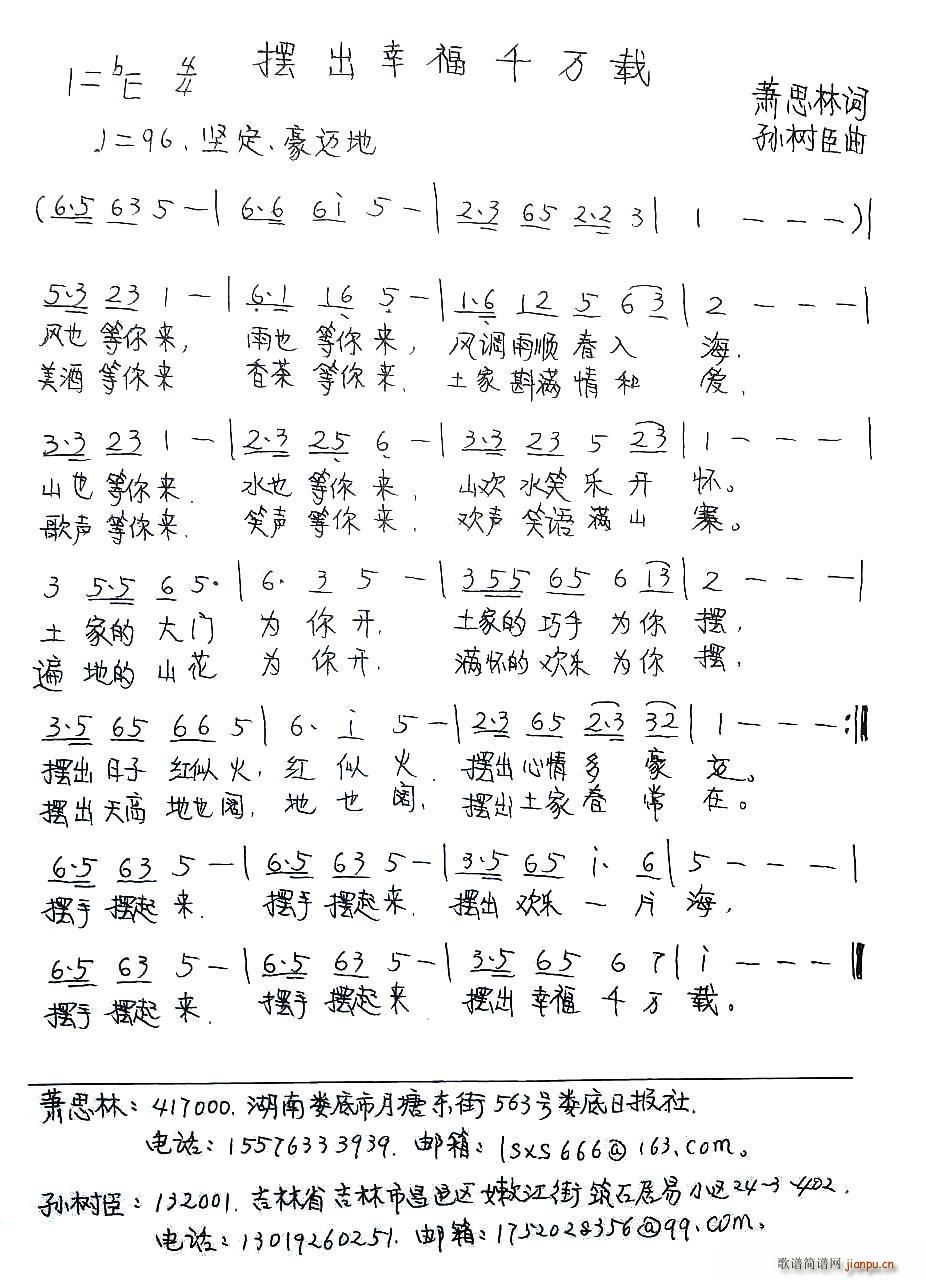 摆出幸福千万载
1=bE 4/4
萧思林词
♩=96、坚定、豪迈地
孙树臣曲
(6·5 63 5 - | 6·6 6i 5 - | 2·3 65 2·2 3 | 1 - - - )|
5·3 23 1 - | 6·1 16 5 - | 1·6 12 5 63 | 2 - - - |
风也等你来, 雨也等你来, 风调雨顺春入海.
美酒等你来 香茶等你来. 土家斟满情和爱.
3·3 23 1 - | 2·3 25 6 - | 3·3 23 5 23 | 1 - - - |
山也等你来. 水也等你来, 山欢水笑乐开怀。
歌声等你来. 笑声等你来. 欢声笑语满山寨。
3 5·5 6 5· | 6· 3 5 - | 355 65 6 i3 | 2 - - - |
土家的大门为你开. 土家的巧手为你摆,
遍地的山花为你开. 满怀的欢乐为你摆,
3·5 65 66 5 | 6· i 5 - | 2·3 65 2·3 32 | 1 - - - :‖
摆出日子红似火, 红似火. 摆出心情多豪迈。
摆出天高地也阔, 地也阔, 摆出土家春常在。
6·5 63 5 - | 6·5 63 5 - | 3·5 65 i· 6 | 5 - - - |
摆手摆起来. 摆手摆起来. 摆出欢乐一片海,
6·5 63 5 - | 6·5 63 5 - | 3·5 65 6 7 | i - - - ‖
摆手摆起来. 摆手摆起来 摆出幸福千万载。
萧思林: 417000. 湖南娄底市月塘东街563号娄底日报社.
电话: 15576333939. 邮箱: lsxs666@163.com。
孙树臣: 132001. 吉林省吉林市昌邑区嫩江街筑石居易小区24-3-402.
电话: 13019260251. 邮箱: 1752028356@qq.com.
歌谱简谱网
jianpu.cn